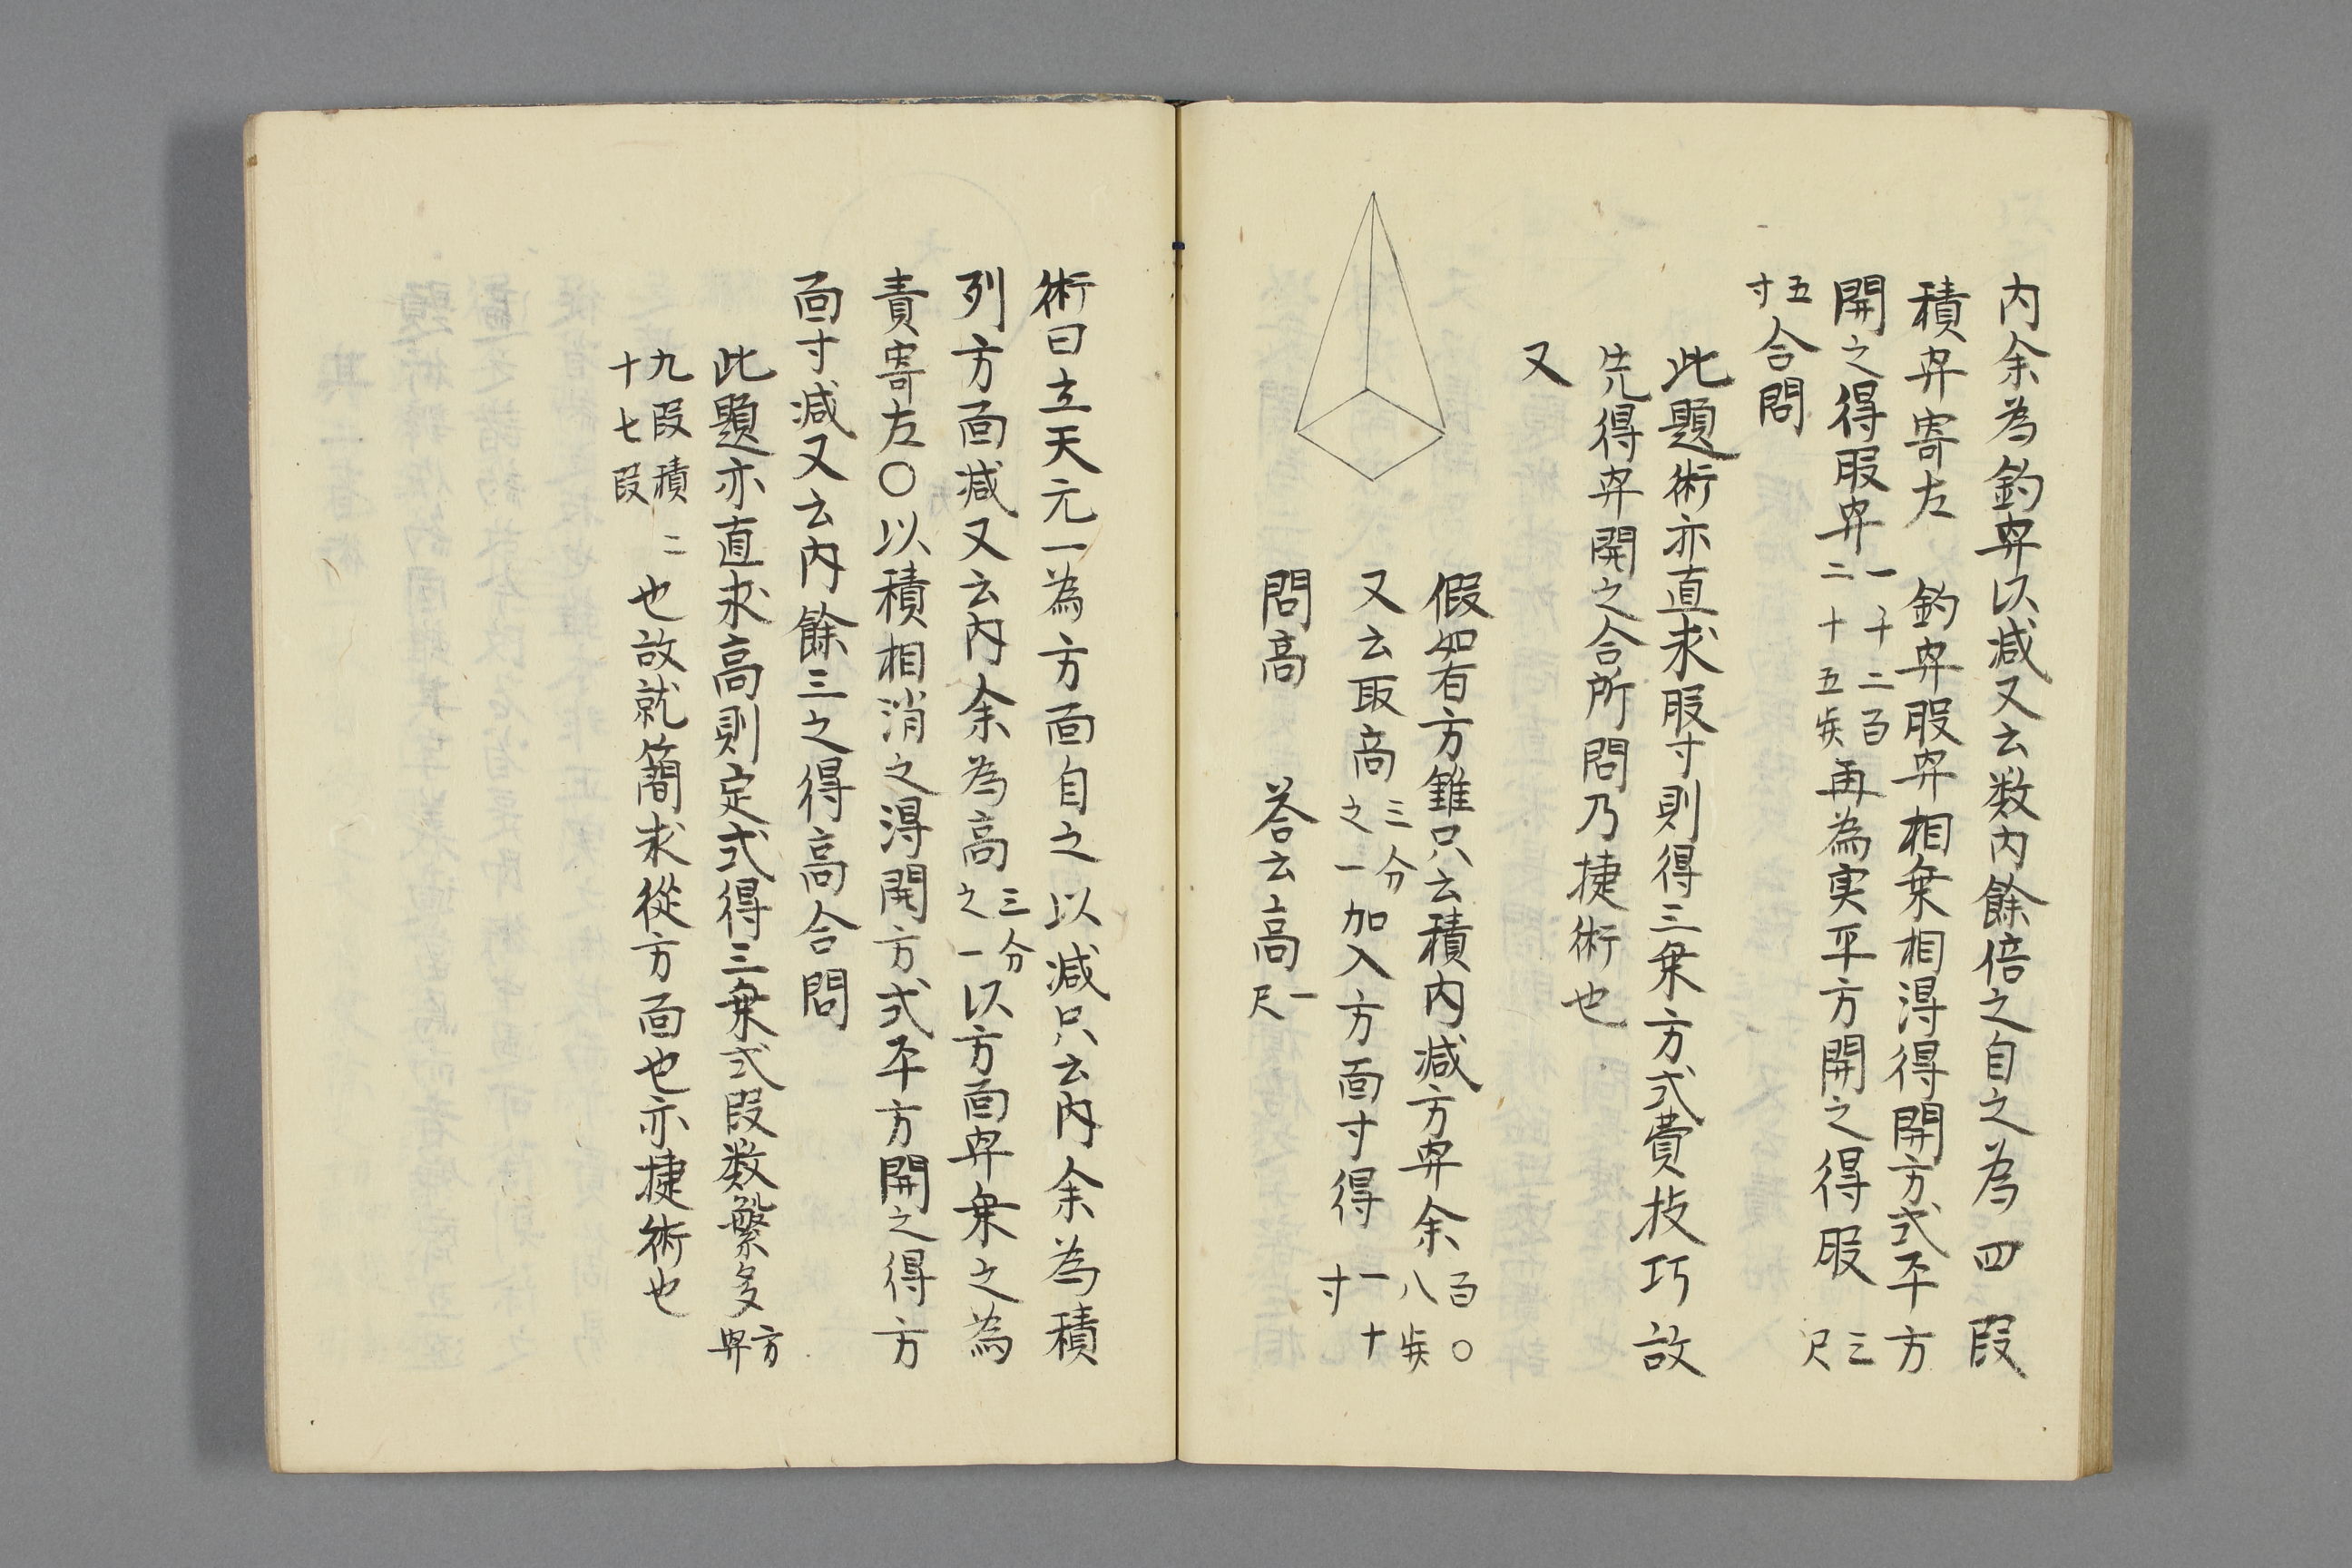 内余為釣巾以减又云数内餘倍之自之為四段
積巾寄左　釣巾股巾相乗相得得開方式平方
開之得股巾一千二百二十五歩再為実平方開之得股三尺
五寸合問
此題術亦直求股寸則得三乗方式費技巧故
先得巾開之合所問乃捷術也
又
假如有方錐只云積内减方巾余百〇八歩
又云取高三分之一加入方面寸得一十寸
問高　答云高一尺
術曰立天元一為方面自之以减只云内余為積
列方面减又云内余為高三分之一以方面巾乗之為
責寄左〇以積相消之得開方式平方開之得方
面寸减又云内餘三之得高合問
此題亦直求高則定式得三乗式段数繁多方巾
九段積二十七段也故就簡求從方面也亦捷術也